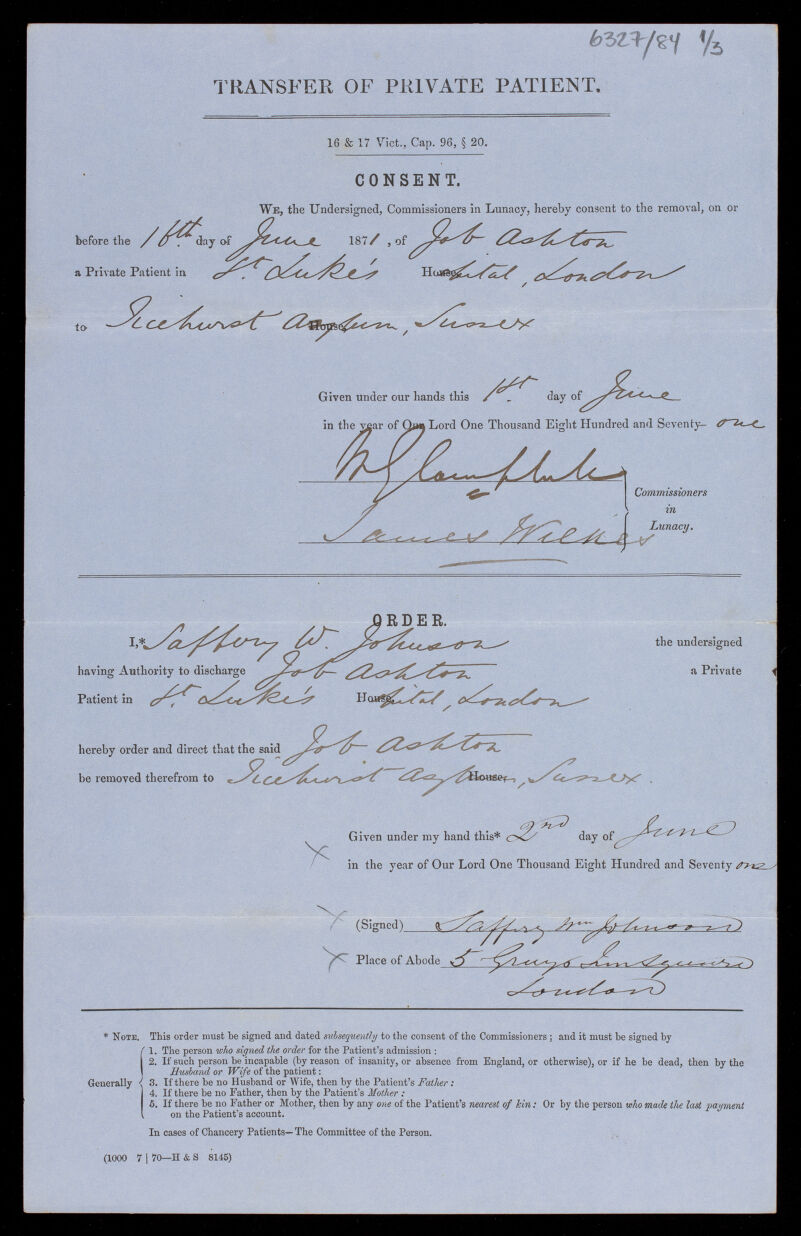 6327/84 1/3
TRANSFER OF PRIVATE PATIENT.
16 & 17 Vict., Cap. 96, § 20.
CONSENT.
WE, the Undersigned, Commissioners in Lunacy, hereby consent to the removal, on or
before the 16th day of June 1871, of Job Ashton
a Private Patient in St. Luke's Hospital, London
to Ticehurst Asylum, Sussex
Given under our hands this 1st day of June
in the year of Our Lord One Thousand Eight Hundred and Seventy-one
Commissioners
in
Lunacy.
James Wilkes
ORDER.
I,* Saffery W. Johnson the undersigned
having Authority to discharge Job Ashton a Private
Patient in St. Luke's Hospital, London
hereby order and direct that the said Job Ashton
be removed therefrom to Ticehurst Asylum, Sussex.
Given under my hand this* 2nd day of June
in the year of Our Lord One Thousand Eight Hundred and Seventy one
(Signed) Saffery Wm Johnson
Place of Abode 5 Grays Inn Square
London
* NOTE. This order must be signed and dated subsequently to the consent of the Commissioners; and it must be signed by
1. The person who signed the order for the Patient's admission:
2. If such person be incapable (by reason of insanity, or absence from England, or otherwise), or if he be dead, then by the
Husband or Wife of the patient:
Generally 3. If there be no Husband or Wife, then by the Patient's Father:
4. If there be no Father, then by the Patient's Mother:
5. If there be no Father or Mother, then by any one of the Patient's nearest of kin: Or by the person who made the last payment
on the Patient's account.
In cases of Chancery Patients—The Committee of the Person.
(1000 7 | 70—H & S 8145)